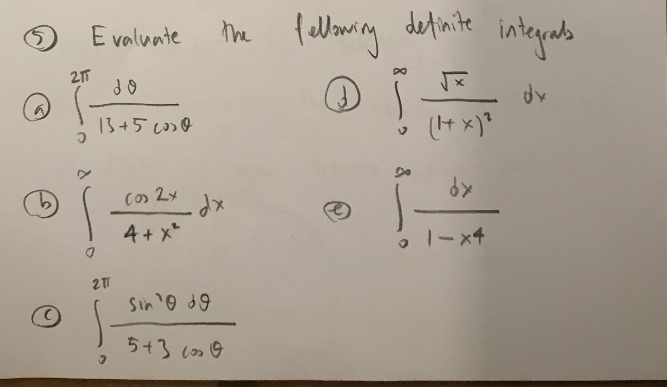 ⑤ Evaluate the following definite integrals
ⓐ ∫₀^2π dθ / (13+5 cosθ)
ⓑ ∫₀^∞ cos 2x / (4 + x²) dx
ⓒ ∫₀^2π sin²θ dθ / (5+3 cosθ)
ⓓ ∫₀^∞ √x / (1+x)² dx
ⓔ ∫₀^∞ dx / (1 - x4)